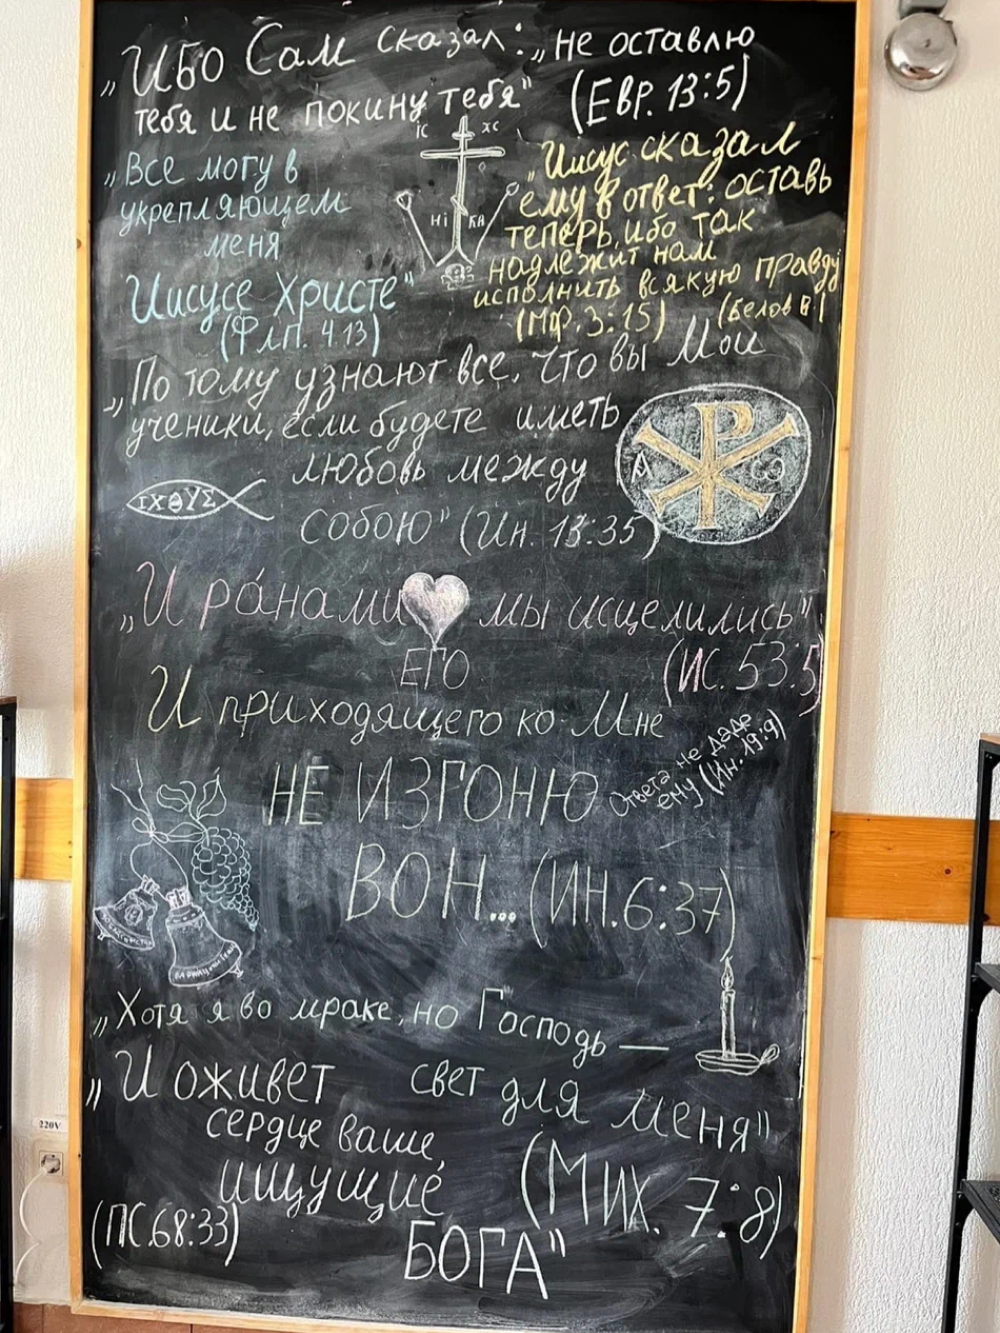 „Ибо Сам сказал: „не оставлю
тебя и не покину тебя" (Евр. 13:5)
IC XC
НІ КА
„Все могу в
укрепляющем
меня
Иисусе Христе"
(Флп. 4.13)
„Иисус сказал
ему в ответ: оставь
теперь, ибо так
надлежит нам
исполнить всякую правду
(Мф. 3:15) (Белов В.)
„По тому узнают все, что вы Мои
ученики, если будете иметь
любовь между
собою" (Ин. 13:35)
ΙΧΘΥΣ
Α Ρ ω
„И ра́нами мы исцелились"
ЕГО
(ИС. 53:5)
И приходящего ко Мне
НЕ ИЗГОНЮ
ВОН... (ИН.6:37)
Ответа не даде
ему (Ин. 19:9)
„Хотя я во мраке, но Господь —
свет для меня"
(Мих. 7:8)
„И оживет
сердце ваше,
ищущие́
БОГА"
(ПС.68:33)
220V